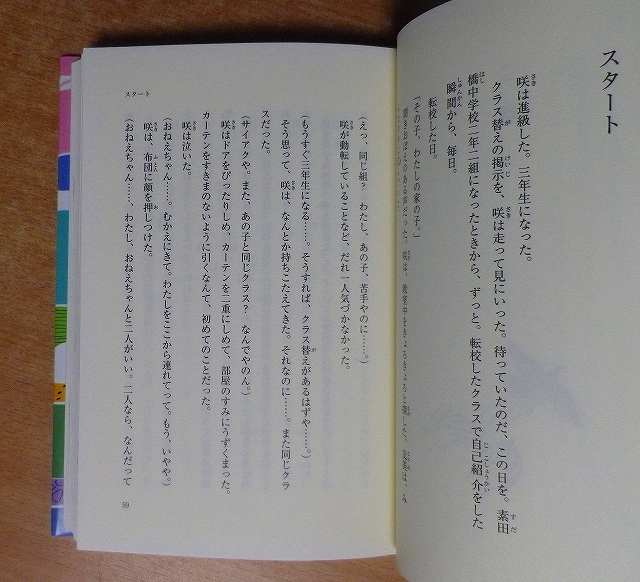 スタート
咲は進級した。三年生になった。
クラス替えの掲示を、咲は走って見にいった。待っていたのだ、この日を。素田
橋中学校二年二組になったときから、ずっと。転校したクラスで自己紹介をした
瞬間から、毎日。
転校した日。
「その子、わたしの家の子。」
聞きおぼえのある声だった。咲は、教室中をきょろきょろと探した。
スタート
(えっ、同じ組？ わたし、あの子、苦手やのに……。)
咲が動転していることなど、だれ一人気づかなかった。
(もうすぐ三年生になる……。そうすれば、クラス替えがあるはずや……。)
そう思って、咲は、なんとか持ちこたえてきた。それなのに……。また同じクラ
スだった。
(サイアクや。また、あの子と同じクラス？ なんでやのん。)
咲はドアをぴったりしめ、カーテンを二重にしめて、部屋のすみにうずくまった。
カーテンをすきまのないように引くなんて、初めてのことだった。
咲は泣いた。
(おねえちゃん……。むかえにきて。わたしをここから連れてって。もう、いやや。)
咲は、布団に顔を押しつけた。
(おねえちゃん……、わたし、おねえちゃんと二人がいい。二人なら、なんだって
59